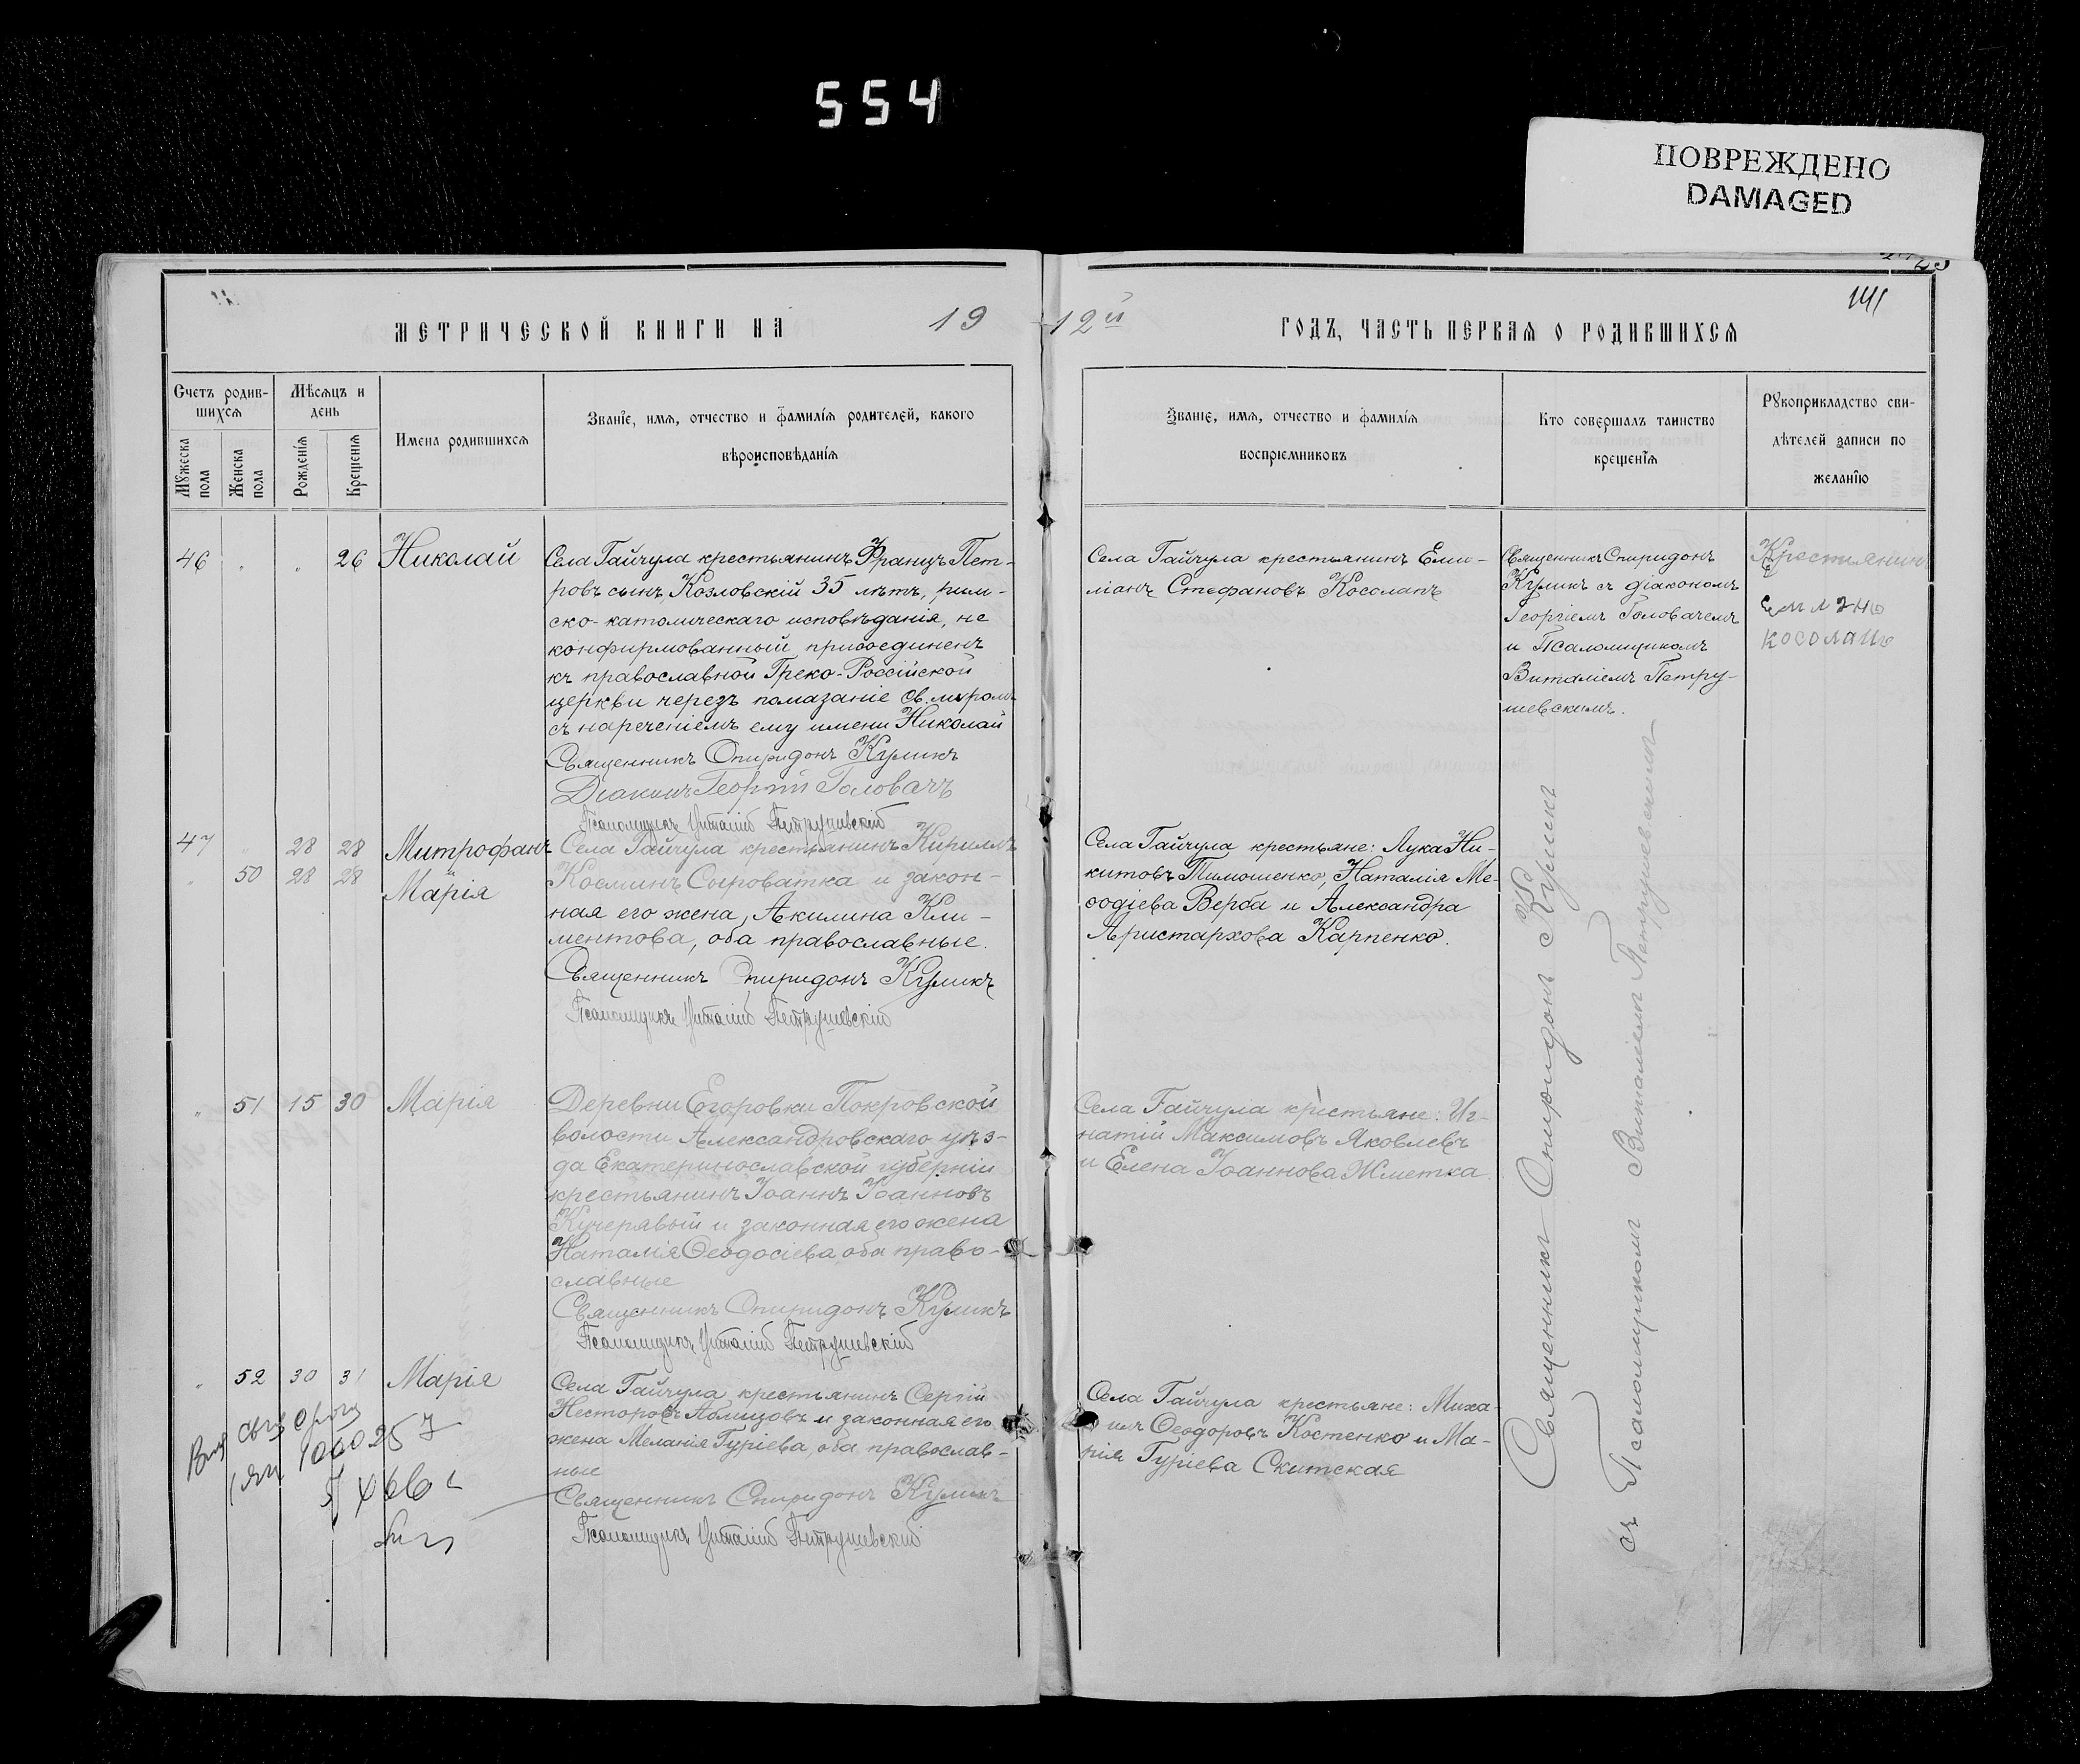 554
ПОВРЕЖДЕНО
DAMAGED
141
МЕТРИЧЕСКОЙ КНИГИ НА 19
12й ГОДЪ, ЧАСТЬ ПЕРВАЯ О РОДИВШИХСЯ
Счетъ родив-
шихся
Мѣсяцъ и
день
Мужеска
пола
Женска
пола
Рожденія
Крещенія
Имена родившихся
Званіе, имя, отчество и фамилія родителей, какого
вѣроисповѣданія
Званіе, имя, отчество и фамилія
воспріемниковъ
Кто совершалъ таинство
крещенія
Рукоприкладство сви-
дѣтелей записи по
желанію
46 " " 26 Николай
Села Гайчула крестьянинъ Францъ Пет-
ровъ сынъ Козловскій 35 лѣтъ, рим-
ско-католическаго исповѣданія, не
конфирмованный, присоединенъ
къ православной Греко-Россійской
церкви черезъ помазаніе св. мѵромъ
съ нареченіемъ ему имени Николай
Священникъ Спиридонъ Куликъ
Діаконъ Георгій Головачъ
Псаломщикъ Виталій Петрушевскій
Села Гайчула крестьянинъ Еми-
ліанъ Стефановъ Косоланъ
Священникъ Спиридонъ
Куликъ съ діакономъ
Георгіемъ Головачемъ
и Псаломщикомъ
Виталіемъ Петру-
шевскимъ.
Крестьянинъ
47 " 28 28 Митрофанъ
" 50 28 28 Марія
Села Гайчула крестьянинъ Кириллъ
Косминъ Сыроватка и закон-
ная его жена, Акилина Кли-
ментова, оба православные.
Священникъ Спиридонъ Куликъ
Псаломщикъ Виталій Петрушевскій
Села Гайчула крестьяне: Лука Ни-
китовъ Тимошенко, Наталія Ме-
ѳодіева Верба и Александра
Аристархова Карпенко.
" 51 15 30 Марія
Деревни Егоровки Покровской
волости Александровскаго уѣз-
да Екатеринославской губерніи
крестьянинъ Іоаннъ Іоанновъ
Кучерявый и законная его жена
Наталія Ѳеодосіева, оба право-
славные
Священникъ Спиридонъ Куликъ
Псаломщикъ Виталій Петрушевскій
Села Гайчула крестьяне: Иг-
натій Максимовъ Яковлевъ
и Елена Іоаннова Жметка.
" 52 30 31 Марія
Села Гайчула крестьянинъ Сергій
Несторовъ Аблицовъ и законная его
жена Меланія Гуріева, оба православ-
ные
Священникъ Спиридонъ Куликъ
Псаломщикъ Виталій Петрушевскій
Села Гайчула крестьяне: Миха-
илъ Ѳеодоровъ Костенко и Ма-
рія Гуріева Скитская
Священникъ Спиридонъ Куликъ
съ Псаломщикомъ Виталіемъ Петрушевскимъ